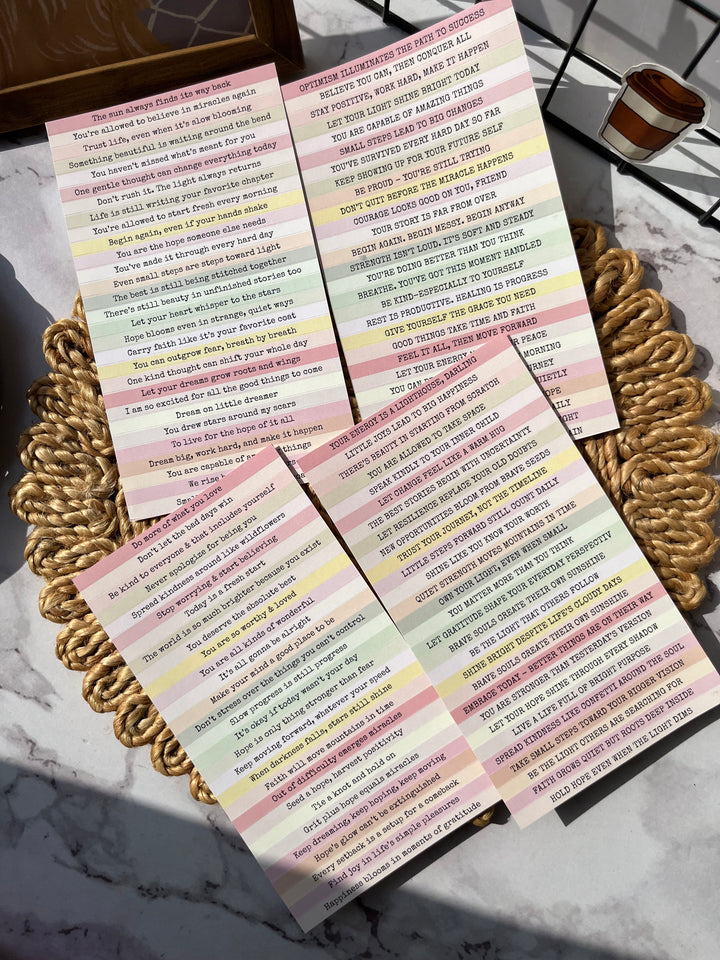 The sun always finds its way back
You're allowed to believe in miracles again
Trust life, even when it's slow blooming
Something beautiful is waiting around the bend
You haven't missed what's meant for you
One gentle thought can change everything today
Don't rush it. The light always returns
Life is still writing your favorite chapter
You're allowed to start fresh every morning
Begin again, even if your hands shake
You are the hope someone else needs
You've made it through every hard day
Even small steps are steps toward light
The best is still being stitched together
There's still beauty in unfinished stories too
Let your heart whisper to the stars
Hope blooms even in strange, quiet ways
Carry faith like it's your favorite coat
You can outgrow fear, breath by breath
One kind thought can shift your whole day
Let your dreams grow roots and wings
I am so excited for all the good things to come
Dream on little dreamer
You drew stars around my scars
To live for the hope of it all
Dream big, work hard, and make it happen
You are capable of
We rise
OPTIMISM ILLUMINATES THE PATH TO SUCCESS
BELIEVE YOU CAN, THEN CONQUER ALL
STAY POSITIVE, WORK HARD, MAKE IT HAPPEN
LET YOUR LIGHT SHINE BRIGHT TODAY
YOU ARE CAPABLE OF AMAZING THINGS
SMALL STEPS LEAD TO BIG CHANGES
YOU'VE SURVIVED EVERY HARD DAY SO FAR
KEEP SHOWING UP FOR YOUR FUTURE SELF
BE PROUD – YOU'RE STILL TRYING
DON'T QUIT BEFORE THE MIRACLE HAPPENS
COURAGE LOOKS GOOD ON YOU, FRIEND
YOUR STORY IS FAR FROM OVER
BEGIN AGAIN. BEGIN MESSY. BEGIN ANYWAY
STRENGTH ISN'T LOUD. IT'S SOFT AND STEADY
YOU'RE DOING BETTER THAN YOU THINK
BREATHE. YOU'VE GOT THIS MOMENT HANDLED
BE KIND-ESPECIALLY TO YOURSELF
REST IS PRODUCTIVE. HEALING IS PROGRESS
GIVE YOURSELF THE GRACE YOU NEED
GOOD THINGS TAKE TIME AND FAITH
FEEL IT ALL, THEN MOVE FORWARD
LET YOUR ENERGY PEACE
YOU CAN MORNING
QUIETLY
HOPE
Do more of what you love
Don't let the bad days win
Be kind to everyone & that includes yourself
Never apologize for being you
Spread kindness around like wildflowers
Stop worrying & start believing
Today is a fresh start
The world is so much brighter because you exist
You deserve the absolute best
You are so worthy & loved
You are all kinds of wonderful
It's all gonna be alright
Make your mind a good place to be
Don't stress over the things you can't control
Slow progress is still progress
It's okay if today wasn't your day
Hope is only thing stronger than fear
Keep moving forward, whatever your speed
When darkness falls, stars still shine
Faith will move mountains in time
Out of difficulty emerges miracles
Seed a hope, harvest positivity
Tie a knot and hold on
Grit plus hope equals miracles
Keep dreaming, keep hoping, keep moving
Hope's glow can't be extinguished
Every setback is a setup for a comeback
Find joy in life's simple pleasures
Happiness blooms in moments of gratitude
YOUR ENERGY IS A LIGHTHOUSE, DARLING
LITTLE JOYS LEAD TO BIG HAPPINESS
THERE'S BEAUTY IN STARTING FROM SCRATCH
YOU ARE ALLOWED TO TAKE SPACE
SPEAK KINDLY TO YOUR INNER CHILD
LET CHANGE FEEL LIKE A WARM HUG
THE BEST STORIES BEGIN WITH UNCERTAINTY
LET RESILIENCE REPLACE YOUR OLD DOUBTS
NEW OPPORTUNITIES BLOOM FROM BRAVE SEEDS
TRUST YOUR JOURNEY, NOT THE TIMELINE
LITTLE STEPS FORWARD STILL COUNT DAILY
SHINE LIKE YOU KNOW YOUR WORTH
QUIET STRENGTH MOVES MOUNTAINS IN TIME
OWN YOUR LIGHT, EVEN WHEN SMALL
YOU MATTER MORE THAN YOU THINK
LET GRATITUDE SHAPE YOUR EVERYDAY PERSPECTIV
BRAVE SOULS CREATE THEIR OWN SUNSHINE
BE THE LIGHT THAT OTHERS FOLLOW
SHINE BRIGHT DESPITE LIFE'S CLOUDY DAYS
BRAVE SOULS CREATE THEIR OWN SUNSHINE
EMBRACE TODAY – BETTER THINGS ARE ON THEIR WAY
YOU ARE STRONGER THAN YESTERDAY'S VERSION
LET YOUR HOPE SHINE THROUGH EVERY SHADOW
LIVE A LIFE FULL OF BRIGHT PURPOSE
SPREAD KINDNESS LIKE CONFETTI AROUND THE SOUL
TAKE SMALL STEPS TOWARD YOUR BIGGER VISION
BE THE LIGHT OTHERS ARE SEARCHING FOR
FAITH GROWS QUIET BUT ROOTS DEEP INSIDE
HOLD HOPE EVEN WHEN THE LIGHT DIMS